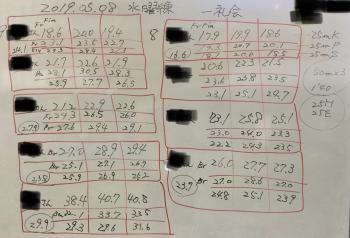 2019.05.08 水曜練 一礼会
Fr Fin
18.6 20.0 19.4
Fr 23.1 23.5 22.7
24.1 23.3 28.4
21.7 22.6 21.9
30.5 28.3
25.9 27.7 26.5
21.2 22.9 22.6
Fr 29.3 26.5 26.0
27.9 Br 27.6 29.4 29.1
Br 27.0 28.9 29.4
Br 25.1 27.1 26.9
23.8 25.9 26.9 26.2
38.4 40.7 40.8
33.7 33.5
29.9 29.3 29.6 31.6
8
Fr Fin
17.9 18.9 18.6
20.7 20.1
16.6
20.6 22.3 21.5
23.6 25.8 23.5
23.1 25.1 24.7
23.1 25.8 25.1
23.0 24.0 23.3
22.2 24.3 23.5
Br 26.0 27.7 27.3
23.7 Br 27.0 28.6 27.0
24.8 25.1 23.9
25m K
25m P
25m S
50m×3
1'00
25H
25E